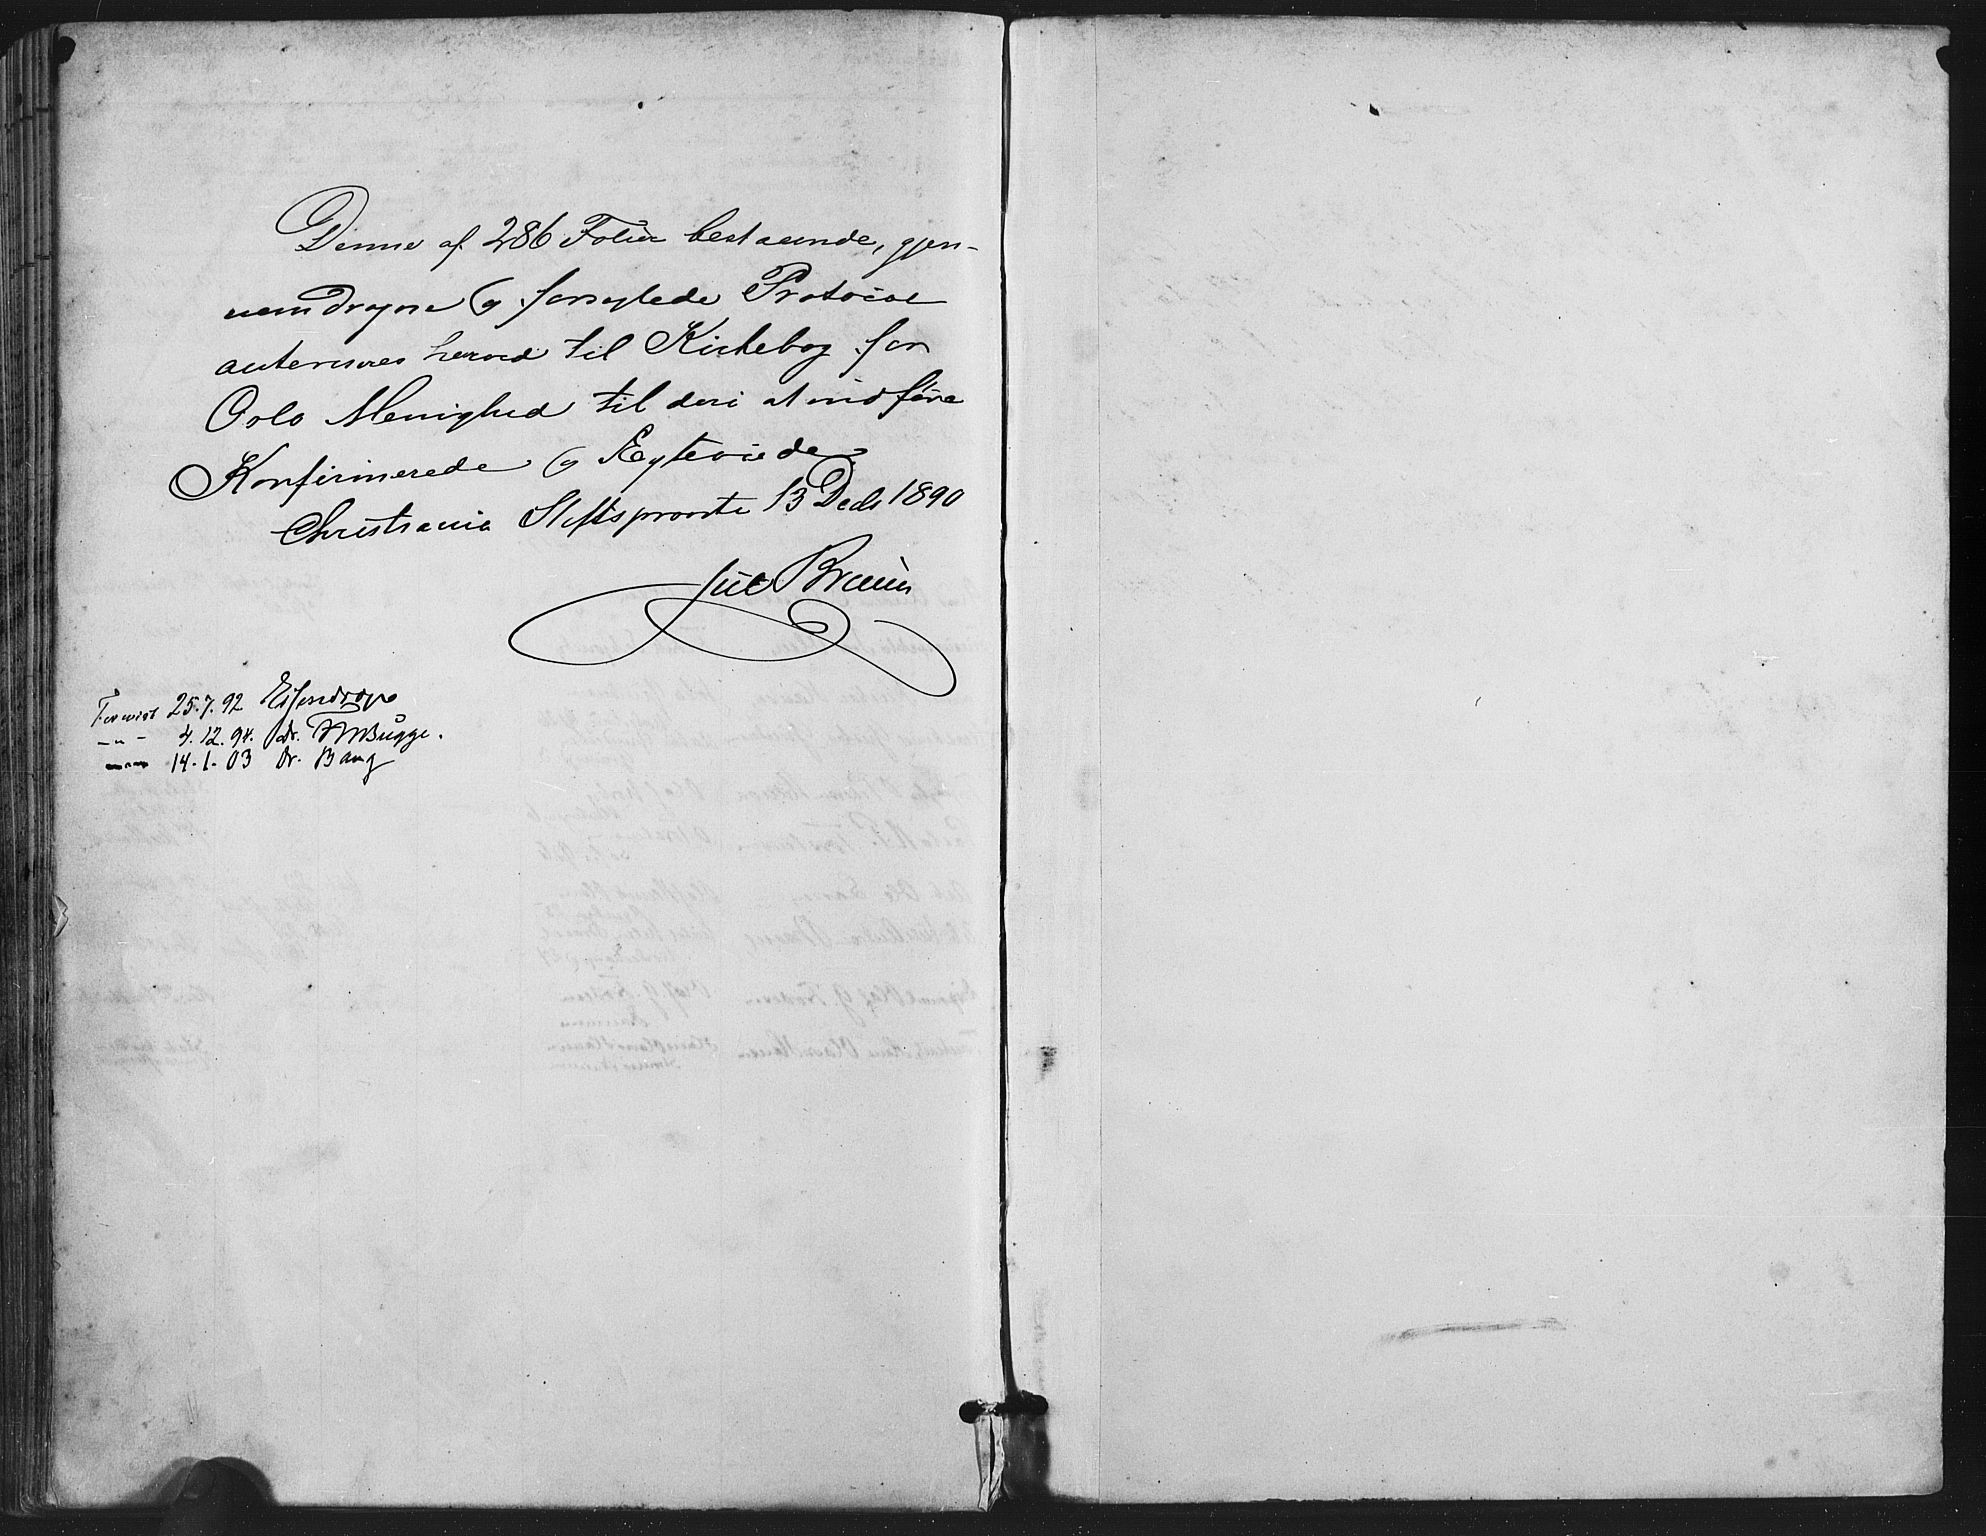 Denne af 286 Folier bestaaende, gjen-
nemdragne og forseglede Protocol
autoriseres herved til Kirkebog for
Oslo Menighed til deri at indføre
Konfirmerede og Ægteviede.
Christiania Stiftsprovsti 13 Decbr 1890
Jul Bruun
Forevist 25.7.92
-"- 4.12.94. Dr. Bugge.
14.1.03 Dr. Bang